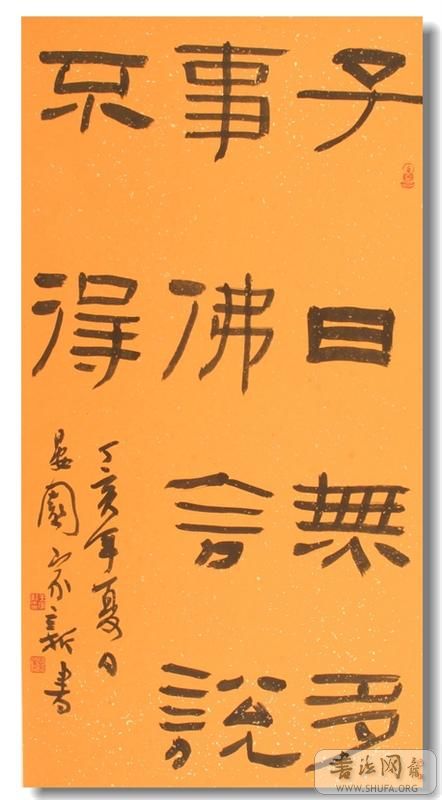 子曰無多
事佛言說
不得
丁亥年夏日
園 書
書法网
WWW.SHUFA.ORG